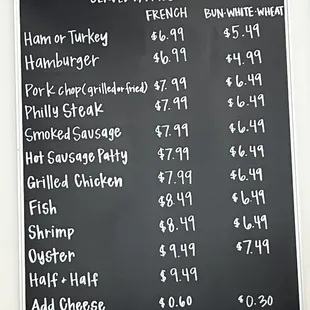 FRENCH BUN·WHITE·WHEAT
Ham or Turkey $6.99 $5.49
Hamburger $6.99 $4.99
Pork chop (grilled or fried) $7.99 $6.49
Philly Steak $7.99 $6.49
Smoked Sausage $7.99 $6.49
Hot Sausage Patty $7.99 $6.49
Grilled Chicken $7.99 $6.49
Fish $8.49 $6.49
Shrimp $8.49 $6.49
Oyster $9.49 $7.49
Half + Half $9.49
Add Cheese $0.60 $0.30